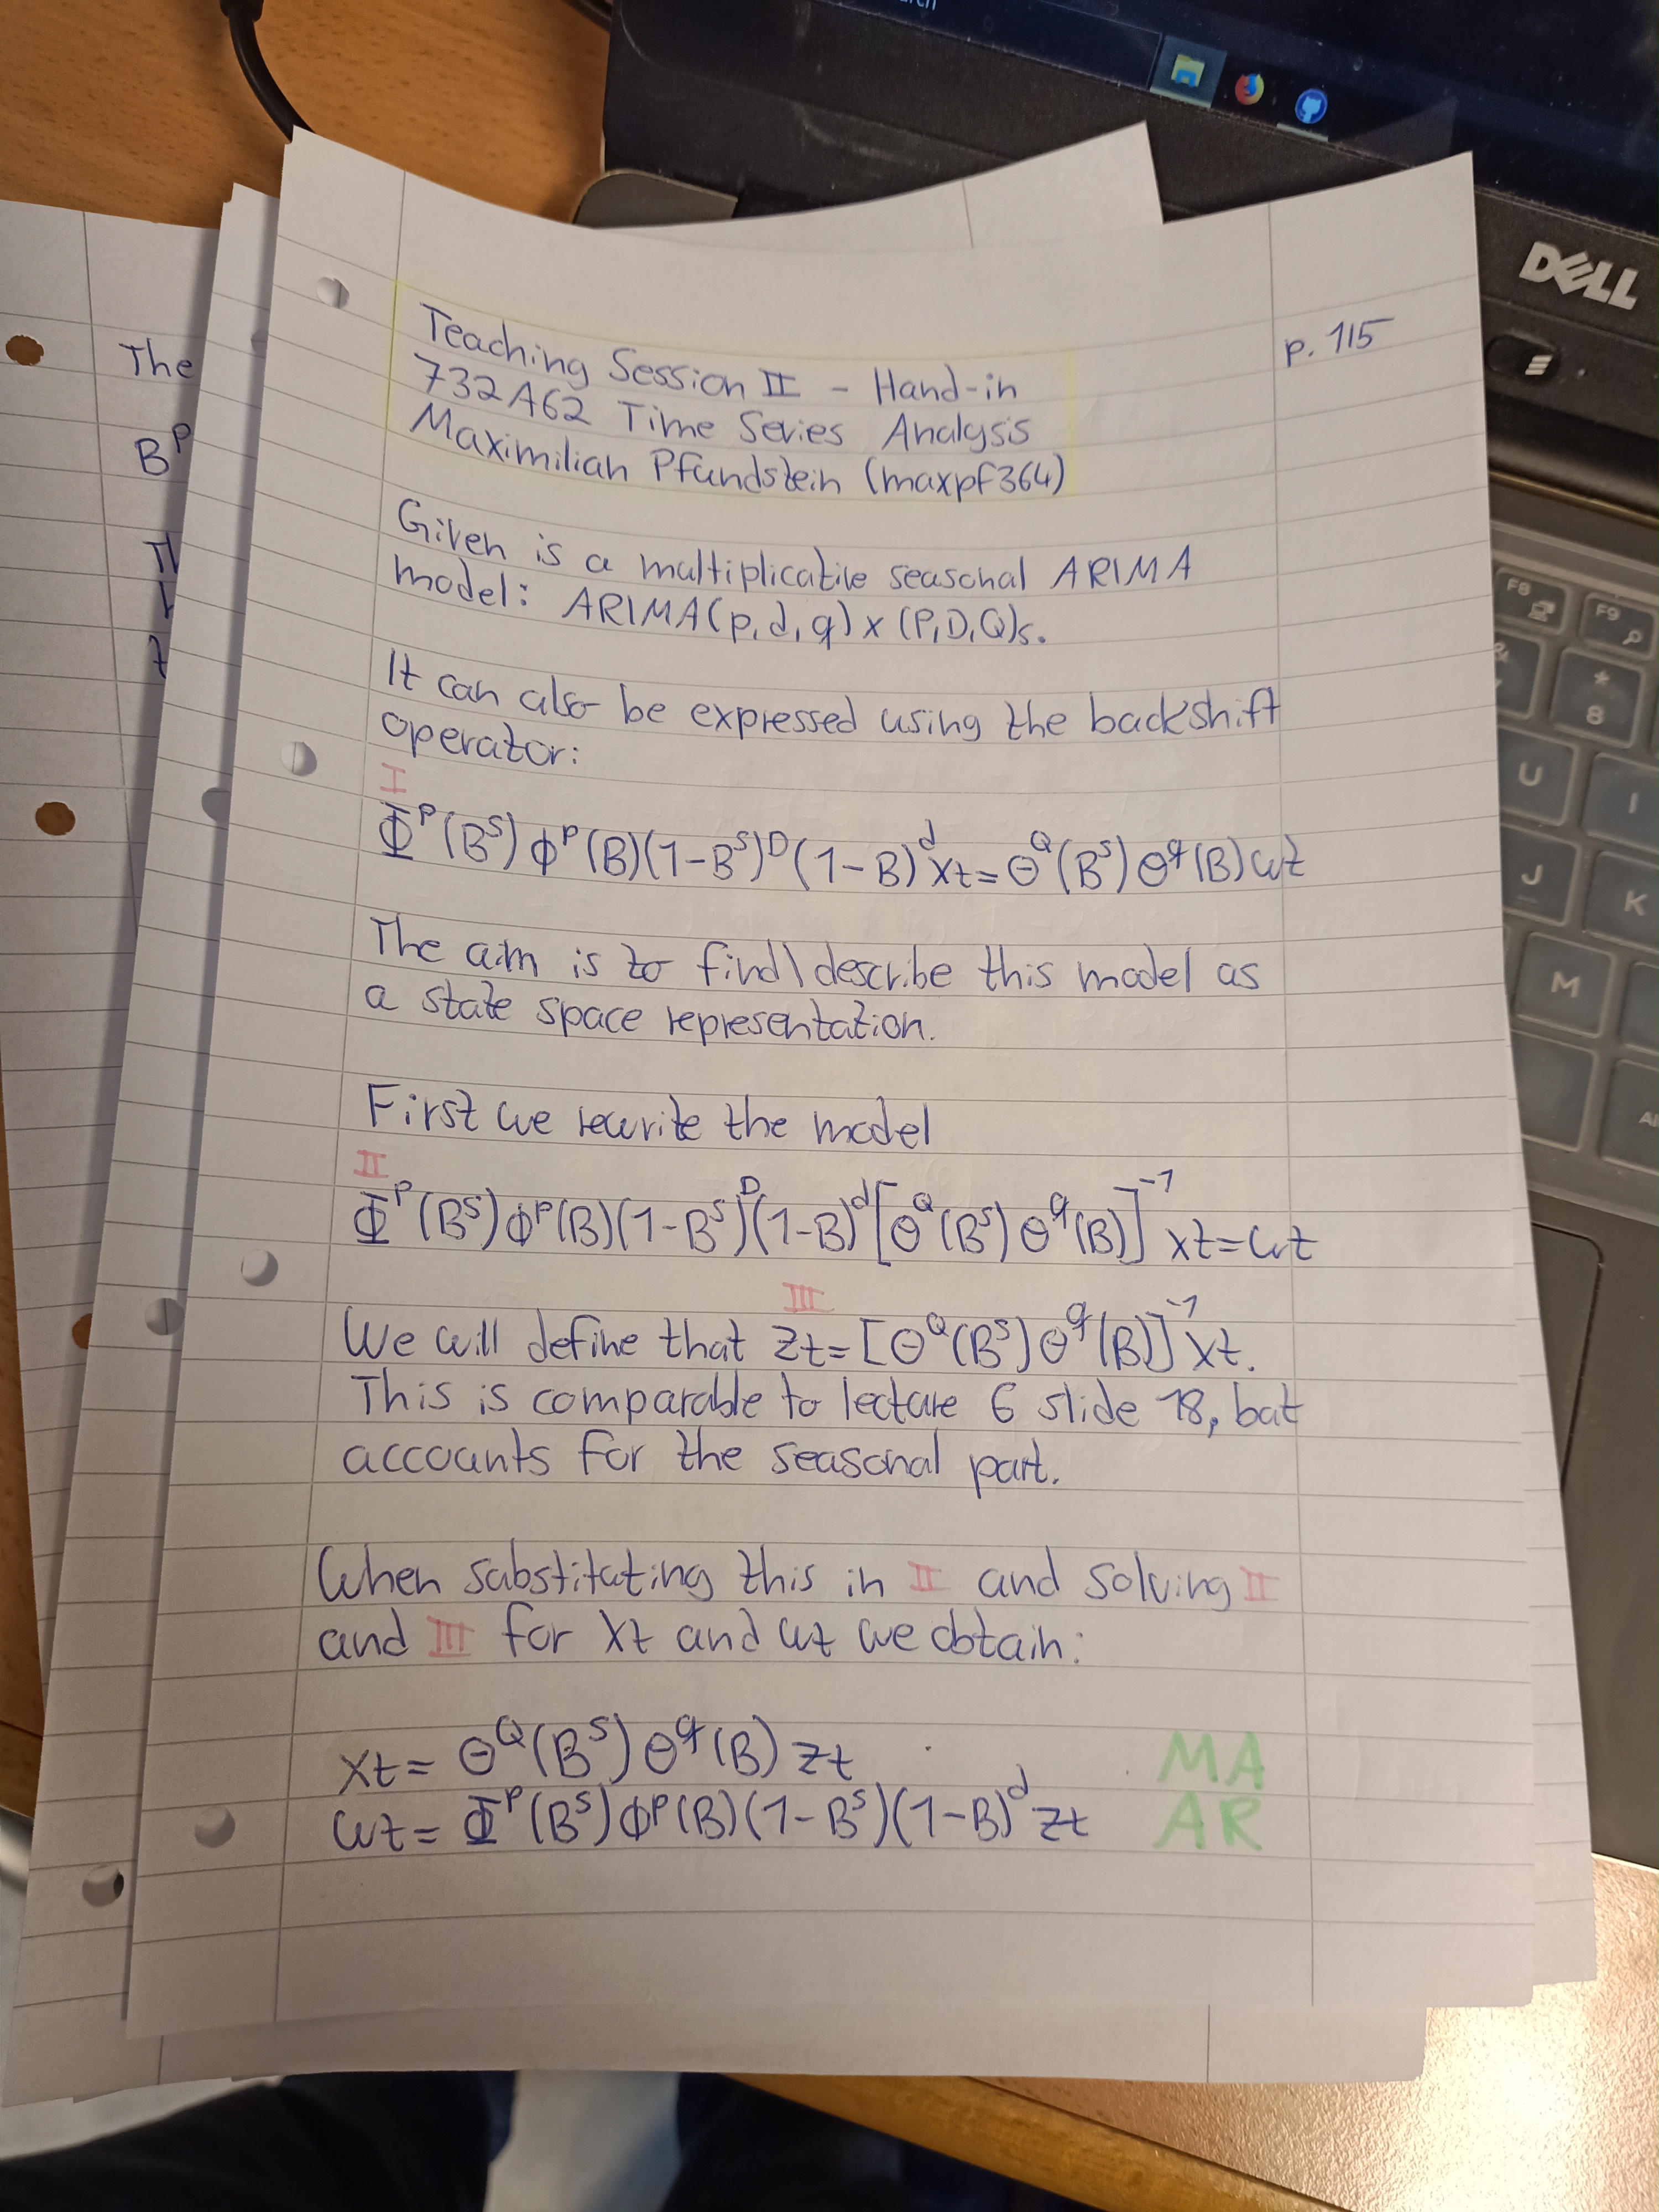 arch
DELL
F8
F9
*
8
U
I
J
K
M
The
B^P
p. 1/5
Teaching Session II - Hand-in
732A62 Time Series Analysis
Maximilian Pfundstein (maxpf364)
Given is a multiplicative seasonal ARIMA
model: ARIMA(p,d,q) x (P,D,Q)s.
It can also be expressed using the backshift
operator:
I
Φ^P(B^S) ϕ^p(B)(1-B^S)^D(1-B)^d xt = Θ^Q(B^S) Θ^q(B) wt
The aim is to find\describe this model as
a state space representation.
First we rewrite the model
II
Φ^P(B^S) ϕ^p(B)(1-B^S)^D(1-B)^d [Θ^Q(B^S) Θ^q(B)]^-1 xt = wt
III
We will define that zt = [Θ^Q(B^S) Θ^q(B)]^-1 xt.
This is comparable to lecture 6 slide 18, but
accounts for the seasonal part.
When substituting this in II and solving II
and III for xt and wt we obtain:
xt = Θ^Q(B^S) Θ^q(B) zt MA
wt = Φ^P(B^S) ϕ^p(B)(1-B^S)(1-B)^d zt AR